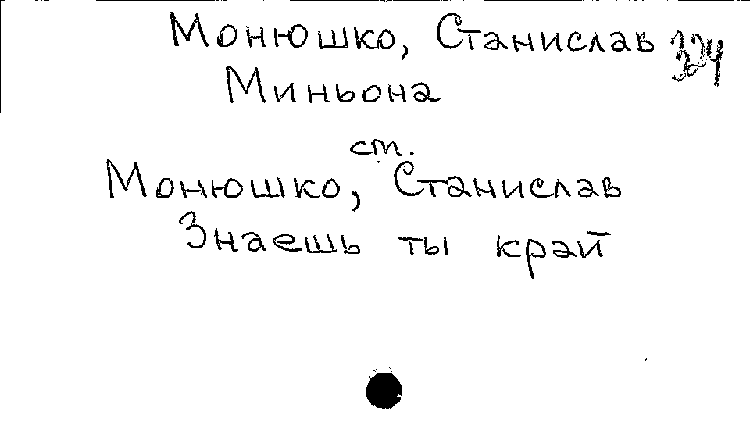 Монюшко, Станислав 324
Миньона
ст.
Монюшко, Станислав
Знаешь ты край